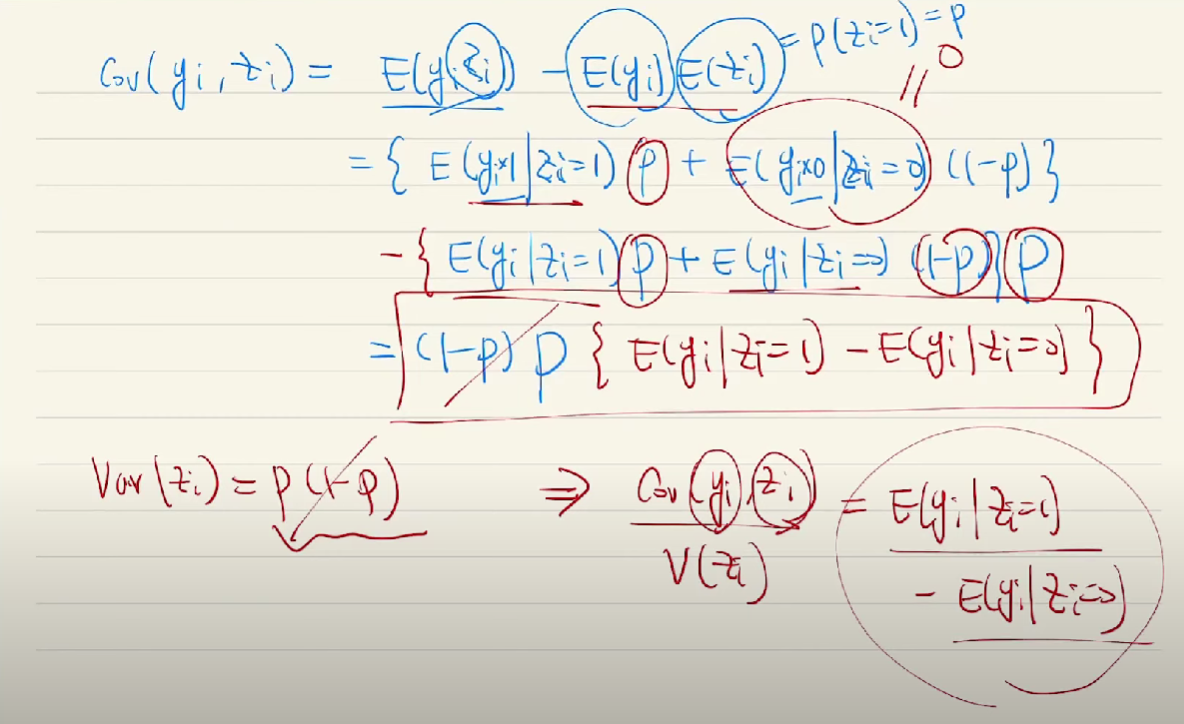 Cov(yi, zi) = E(yi zi) - E(yi) E(zi) = p(zi=1) = p
= { E(yi×1|zi=1) p + E(yi×0|zi=0) (1-p) } = 0
- { E(yi|zi=1) p + E(yi|zi=0) (1-p) } p
= (1-p) p { E(yi|zi=1) - E(yi|zi=0) }
Var(zi) = p(1-p) ⇒ Cov(yi, zi) / V(zi) = E(yi|zi=1)
- E(yi|zi=0)